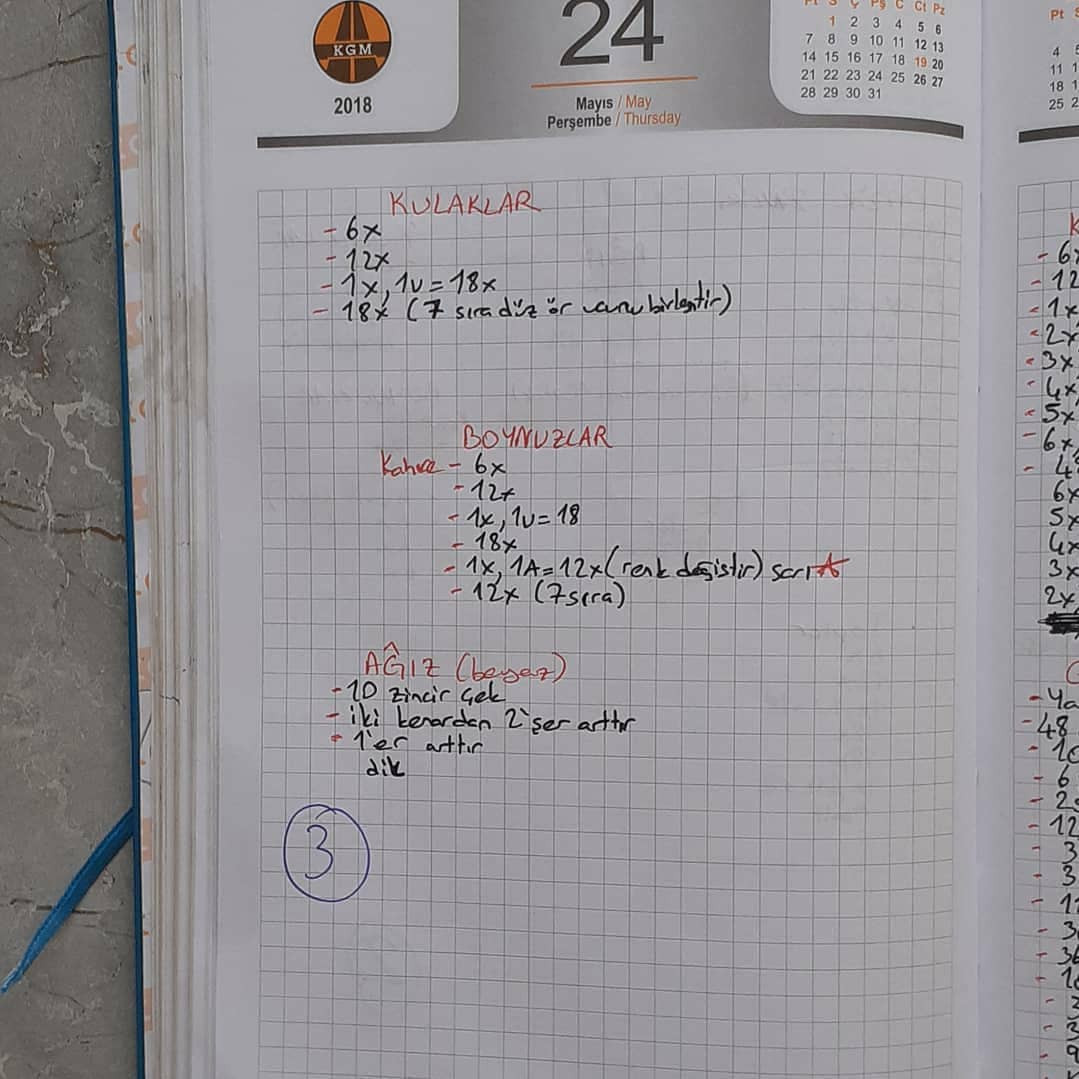 KGM
2018
24
Mayıs / May
Perşembe / Thursday
Pt S Ç Pş C Ct Pz
1 2 3 4 5 6
7 8 9 10 11 12 13
14 15 16 17 18 19 20
21 22 23 24 25 26 27
28 29 30 31
KULAKLAR
- 6x
- 12x
- 1x, 1v = 18x
- 18x (7 sıra düz ör birleştir)
BOYNUZLAR
Kahve - 6x
- 12x
- 1x, 1v = 18
- 18x
- 1x, 1A = 12x (renk değistir) sarı
- 12x (7 sıra)
AĞIZ (beyaz)
- 10 zincir çek
- iki kenardan 2'şer arttır
- 1'er arttır
dik
3
Pt
4
11
18
25
- 6x
- 12
- 1x
- 2x
- 3x
- 4x
- 5x
- 6x
6x
5x
4x
3x
2x
- 48
- 6
- 12
- 3
- 3